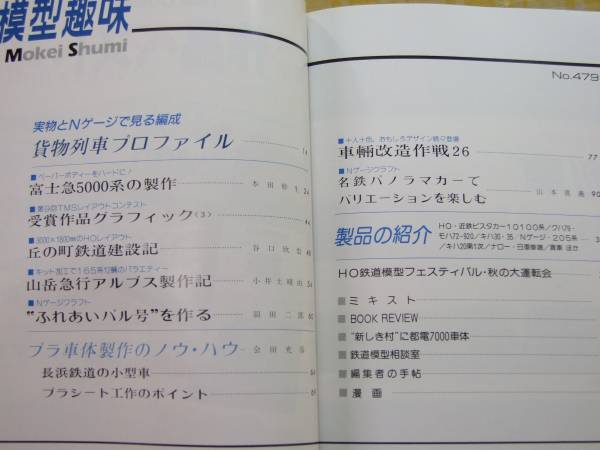 模型趣味
Mokei Shumi
実物とNゲージで見る編成
貨物列車プロファイル 14
■ペーパーボディーをハードに！
富士急5000系の製作 本田
■第9回TMSレイアウトコンテスト
受賞作品グラフィック〈3〉
■3000×1800㎜のHOレイアウト
丘の町鉄道建設記 谷口
■キット加工で165系12輛のバラエティー
山岳急行アルプス製作記 小井土
■Nゲージクラフト
“ふれあいパル号”を作る 岡田二郎 60
プラ車体製作のノウ・ハウ 金田
長浜鉄道の小型車 64
プラシート工作のポイント
No.479
■十人十色，おもしろデザイン続々登場
車輛改造作戦26 77
■Nゲージクラフト
名鉄パノラマカーで
バリエーションを楽しむ 山本 90
製品の紹介 HO・近鉄ビスタカー10100系／クハ79・
モハ72-920／キハ30・35／Nゲージ・205系
／キハ20第1次／ナロー・日車単端／貨車 ほか
HO鉄道模型フェスティバル・秋の大運転会
■ミキスト
■BOOK REVIEW
■“新しき村”に都電7000車体
■鉄道模型相談室
■編集者の手帖
■漫画